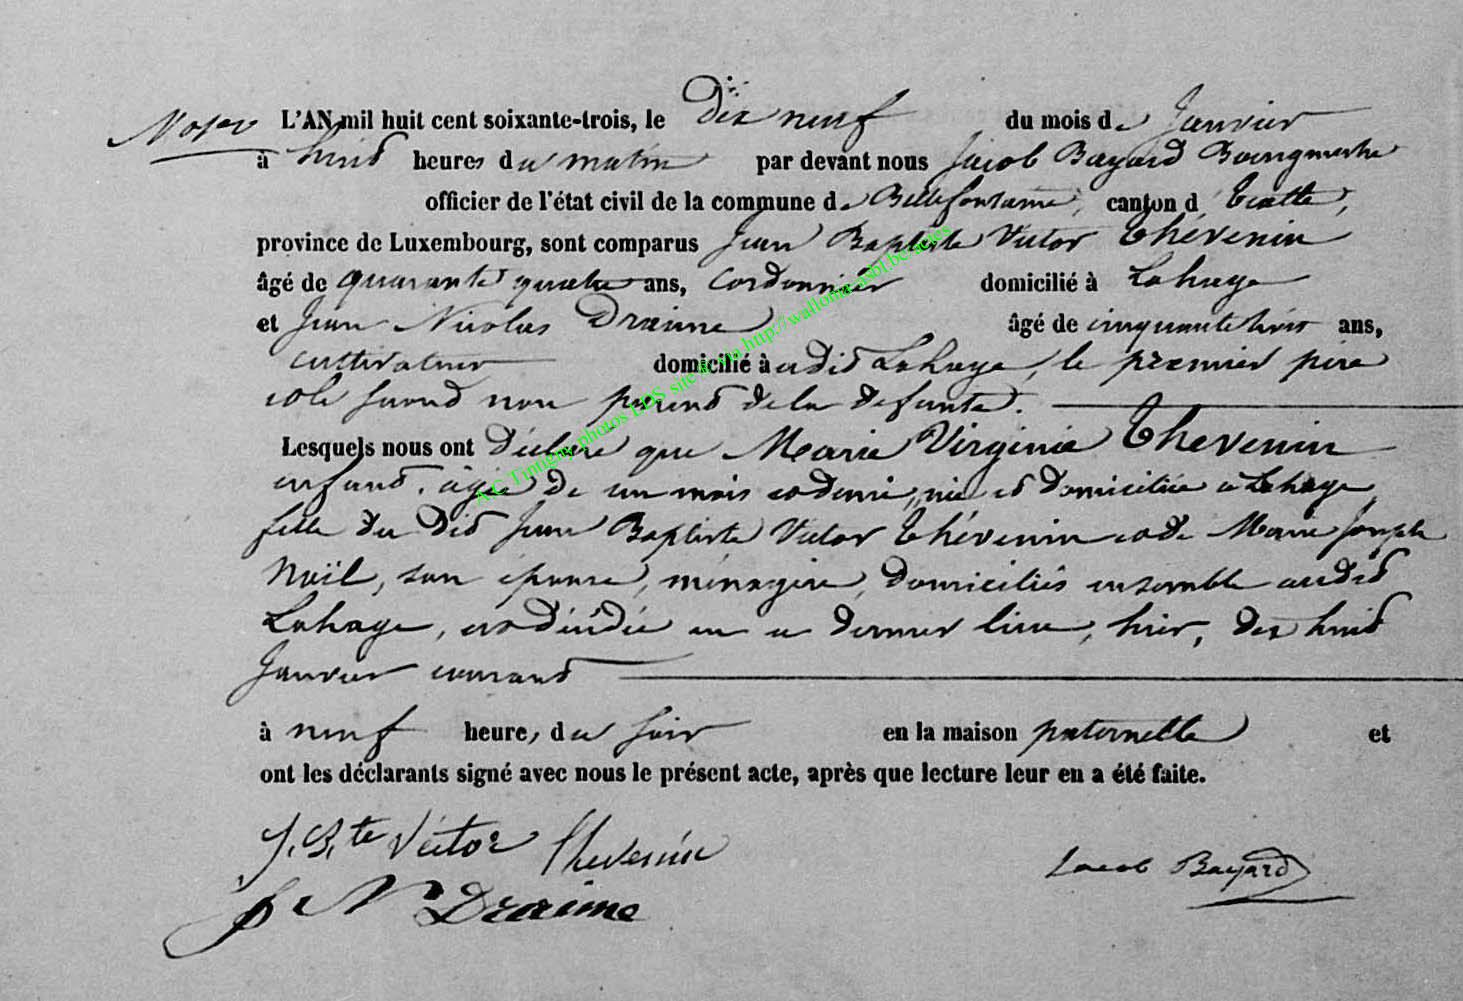 L'AN mil huit cent soixante-trois, le dix neuf du mois de Janvier
à huit heures du matin par devant nous Jacob Bayard Bourgmestre
officier de l'état civil de la commune de Bellefontaine, canton d' Etalle,
province de Luxembourg, sont comparus Jean Baptiste Victor Thévenin
âgé de quarante quatre ans, Cordonnier domicilié à Lahage
et Jean Nicolas Draime âgé de cinquante trois ans,
cultivateur domicilié à audit Lahage, le premier père
et le second non parent de la défunte.
Lesquels nous ont déclaré que Marie Virginie Thévenin
enfant, âgée de un mois et demi, née et domiciliée à Lahage
fille du dit Jean Baptiste Victor Thévenin et de Marie Joseph
Noël, son épouse, ménagère, domiciliés ensemble audit
Lahage, est décédée en ce dernier lieu, hier, dix huit
Janvier courant
à neuf heures du soir en la maison paternelle et
ont les déclarants signé avec nous le présent acte, après que lecture leur en a été faite.
J. Bte Victor Thevenin
Jacob Bayard
J N Draime
A.C Tintigny photos LDS site & via http://wallonia.asbl.be/actes